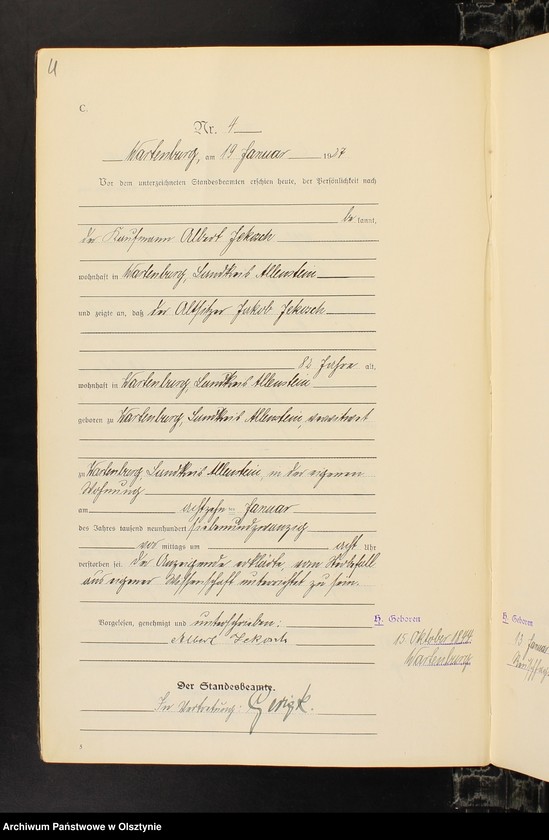 4
C.
Nr. 4
Wartenburg, am 19 Januar 1927
Vor dem unterzeichneten Standesbeamten erschien heute, der Persönlichkeit nach
be kannt,
der Kaufmann Albert Jekosch
wohnhaft in Wartenburg, Landkreis Allenstein
und zeigte an, daß der Altsitzer Jakob Jekosch
82 Jahre alt,
wohnhaft in Wartenburg, Landkreis Allenstein
geboren zu Wartenburg, Landkreis Allenstein, verwitwet
zu Wartenburg, Landkreis Allenstein, in der eigenen
Wohnung
am achtzehn ten Januar
des Jahres tausend neunhundert siebenundzwanzig
vor mittags um acht Uhr
verstorben sei. Der Anzeigende erklärte, vom Sterbefall
aus eigener Wissenschaft unterrichtet zu sein.
Vorgelesen, genehmigt und unterschrieben:
Albert Jekosch
Der Standesbeamte.
In Vertretung: Gerigk.
H. Geboren
15 Oktober 1844
Wartenburg.
H. Geboren
13 Januar
Archiwum Państwowe w Olsztynie